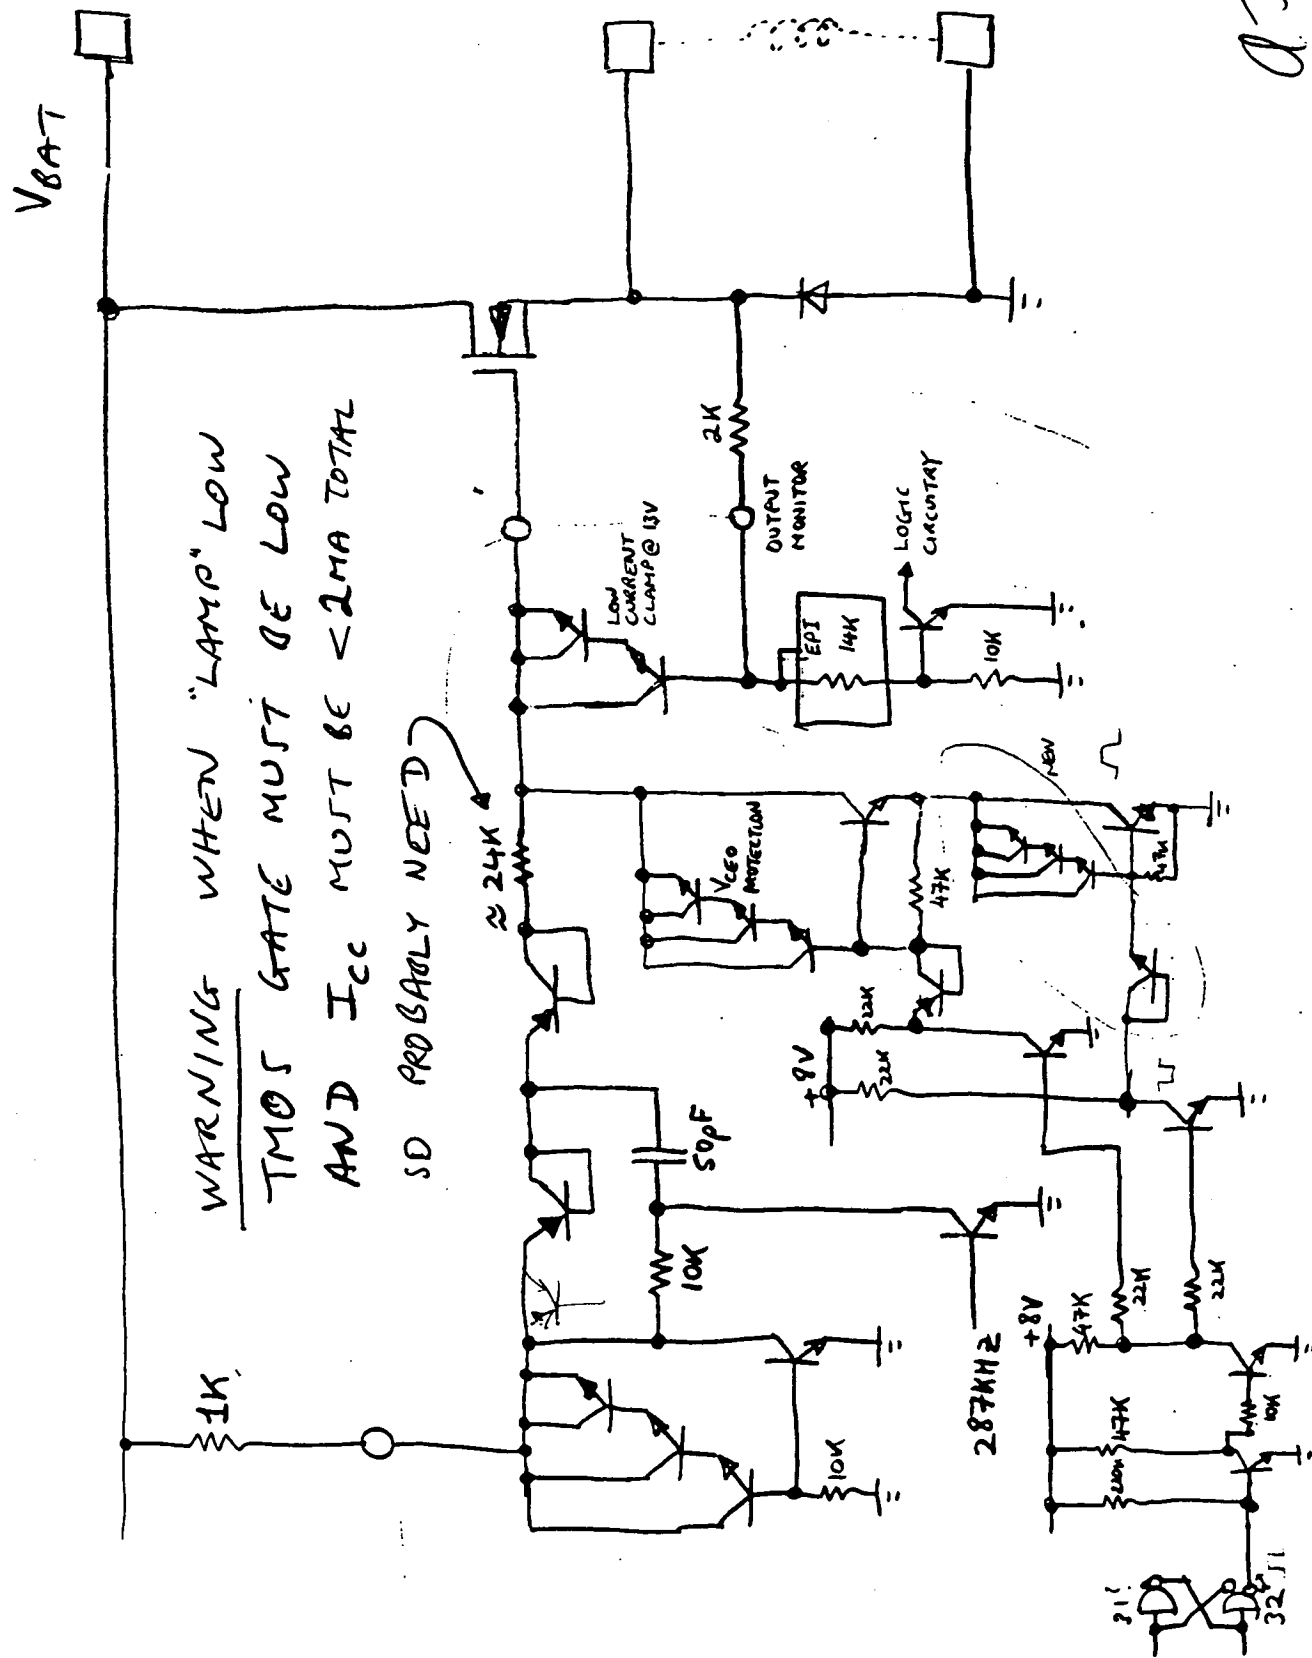 V_BAT
WARNING WHEN "LAMP" LOW
TMOS GATE MUST BE LOW
AND I_CC MUST BE <2MA TOTAL
SO PROBABLY NEED
1K
≈ 24K
50pF
10K
10K
287KHZ
LOW
CURRENT
CLAMP @ 13V
2K
OUTPUT
MONITOR
EPI
14K
LOGIC
CIRCUITRY
10K
V_CEO
PROTECTION
47K
NEW
47K
+8V
22K
22K
+8V
47K
22K
22K
47K
10K
32